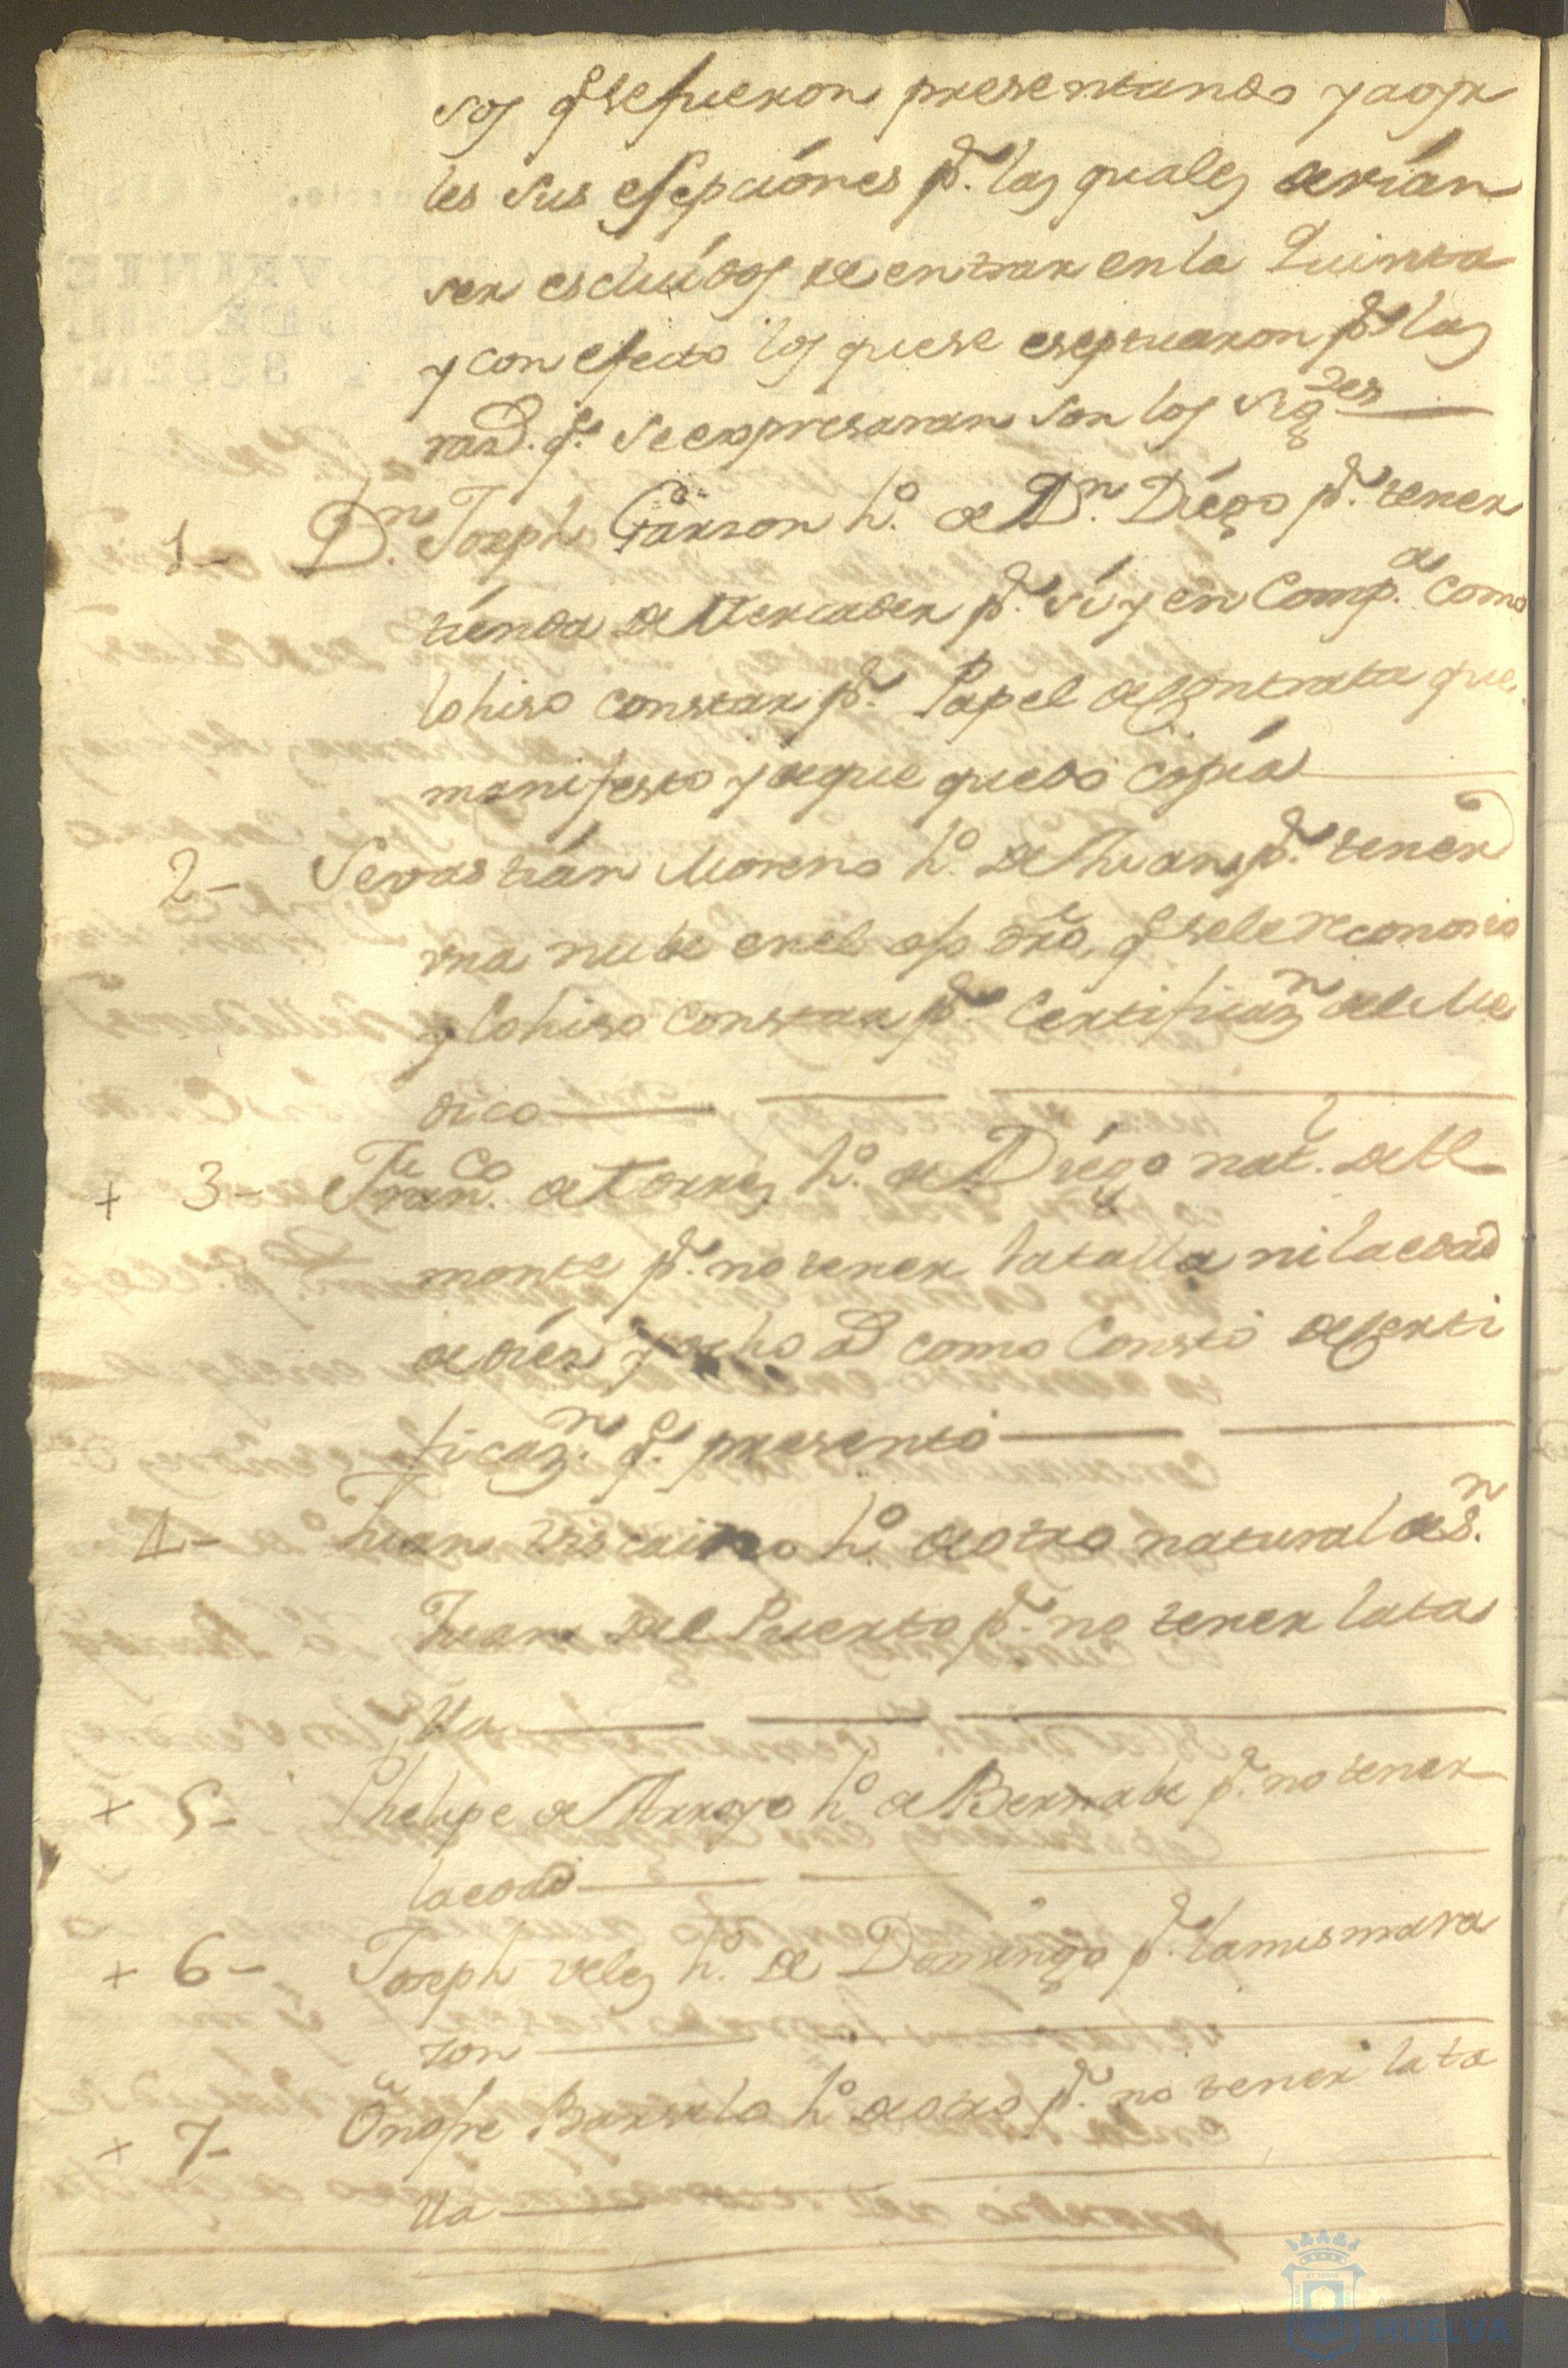 sos q.e se fueron presentando y a oyr
les sus esepciónes p.r las quales devián
ser escluídos de entrar en la Quinta
y con efecto los que se eseptuaron p.r las
raz.s q.e se expresaran son los sig.tes
1- D.n Joseph Garzon h.o de D.n Diégo p.r tener
tiénda de Mercader p.r sí y en Comp.a como
lo hiso constar p.r Papel de Contrata que
manifesto y de que quedó copía
2- Sevastián Moreno h.o de Juan p.r tener
una nube en el ojo dro q.e se le reconosio
y lo hiso constar p.r Certificaz.n del Me
dico
+ 3- Fran.co de Torres h.o de Diégo nat.l de Al
monte p.r no tener la talla ni la edad
de diéz y ocho a.s como Constó de Certi
ficaz.n q.e presentó
4- Juan Viscaino h.o de otro natural de S.n
Juan del Puerto p.r no tener la ta
lla
+ 5- Phelipe de Arroyo h.o de Bernabe p.r no tener
la edad
+ 6- Joseph Velez h.o de Domingo p.r la misma ra
zon
+ 7- Onofre Barselo h.o de otro p.r no tener la ta
lla
HUELVA